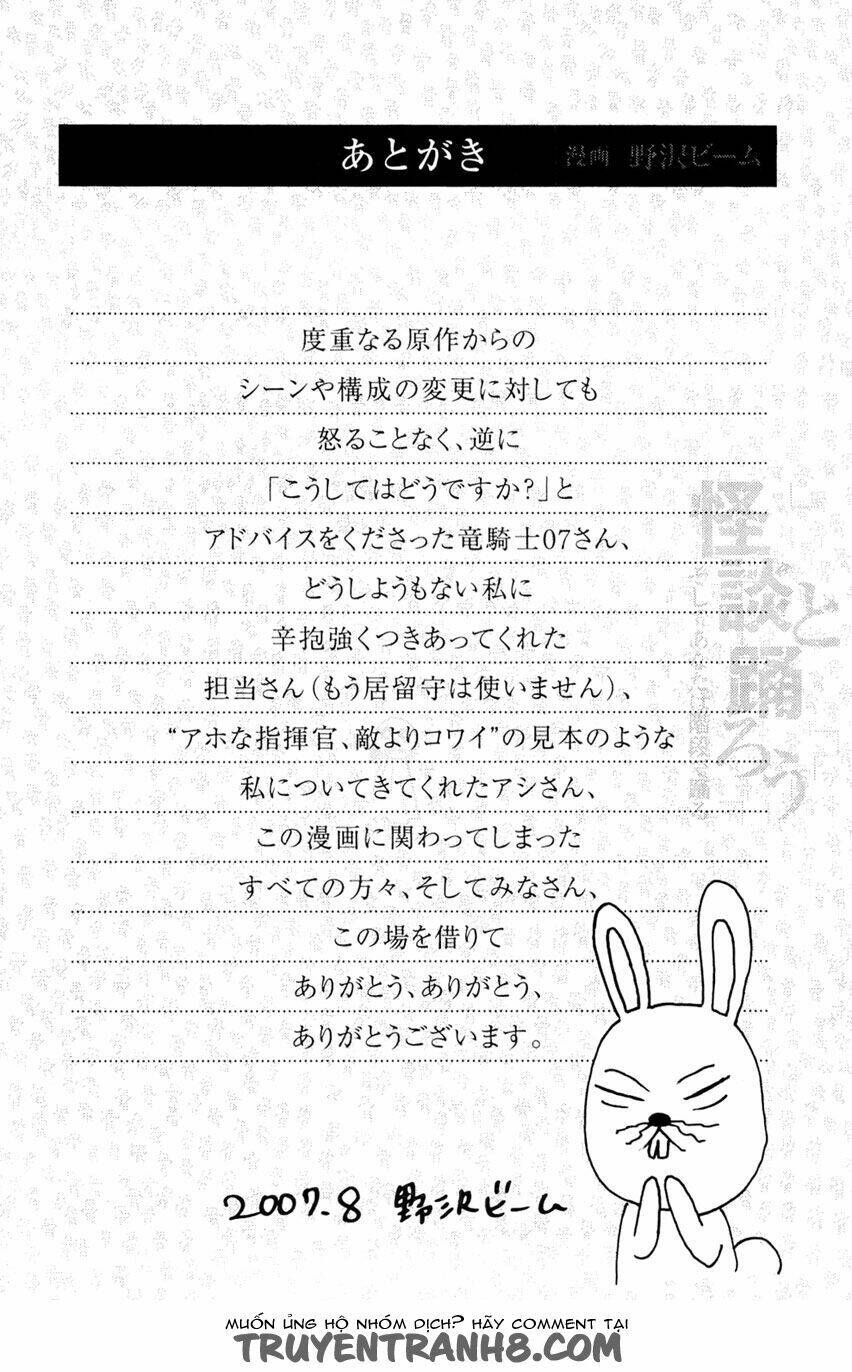 あとがき 漫画 野沢ビーム
度重なる原作からの
シーンや構成の変更に対しても
怒ることなく、逆に
「こうしてはどうですか?」と
アドバイスをくださった竜騎士07さん、
どうしようもない私に
辛抱強くつきあってくれた
担当さん(もう居留守は使いません)、
“アホな指揮官、敵よりコワイ”の見本のような
私についてきてくれたアシさん、
この漫画に関わってしまった
すべての方々、そしてみなさん、
この場を借りて
ありがとう、ありがとう、
ありがとうございます。
怪談と踊ろう
2007.8 野沢ビーム
MUỐN ỦNG HỘ NHÓM DỊCH? HÃY COMMENT TẠI
TRUYENTRANH8.COM